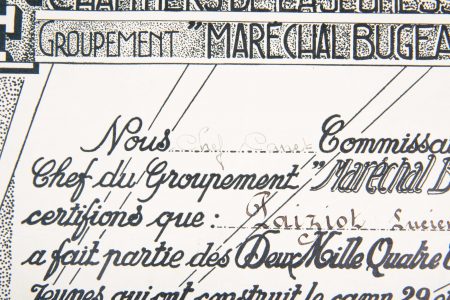 CHANTIERS DE LA JEUNESSE
GROUPEMENT "MARÉCHAL BUGEA
Nous Commissa
Chef du Groupement "Maréchal B
certifions que : Paiziot Lucien
a fait partie des Deux Mille Quatre C
Jeunes qui ont construit le camp 29 et